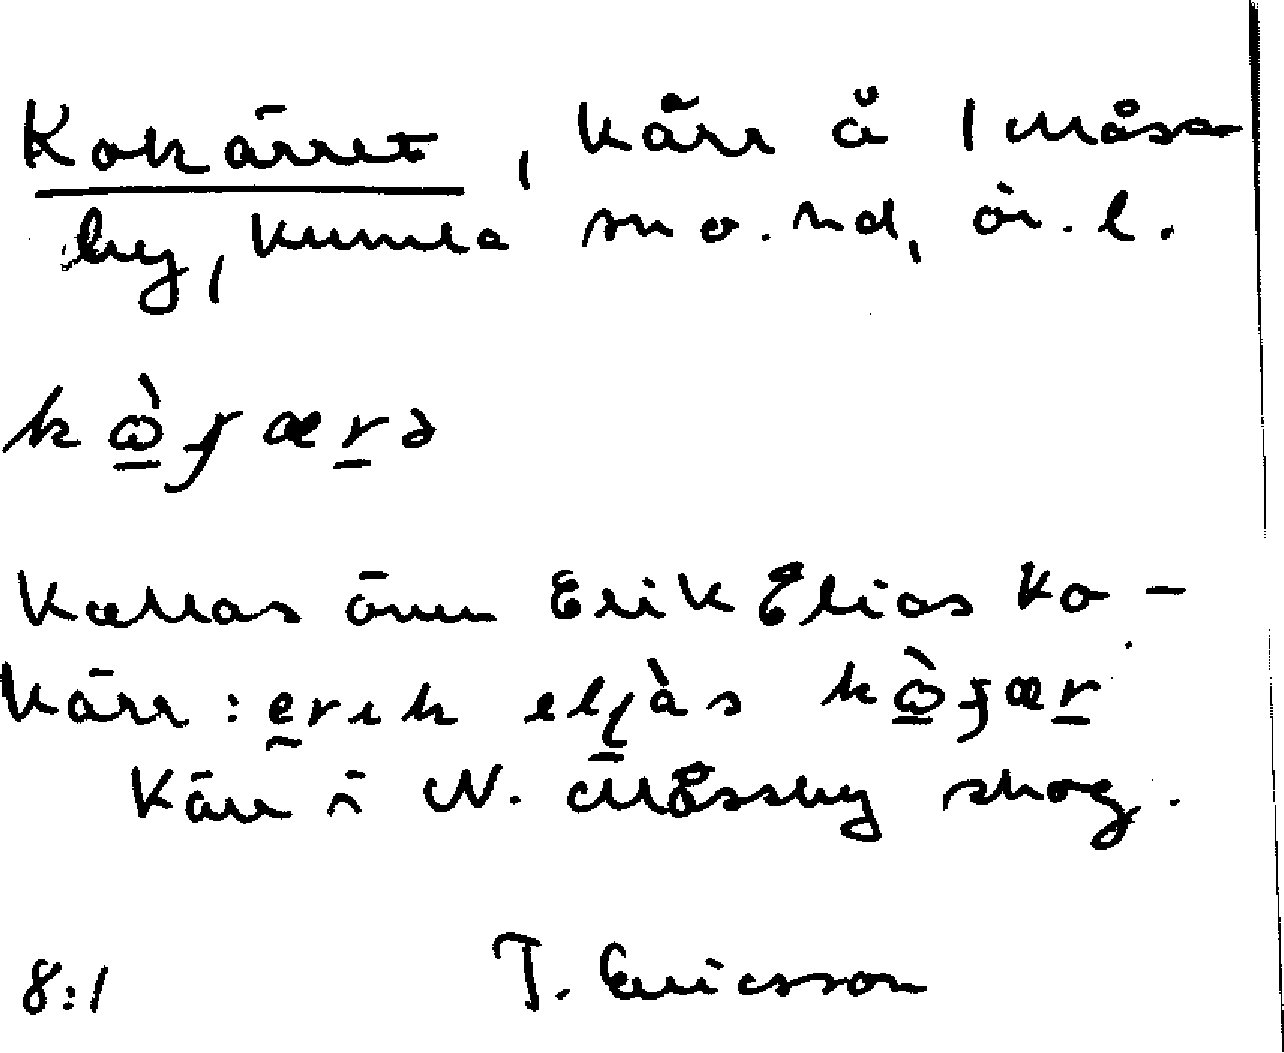 Kokärret, kärr å 1 Måsa-
by, Kumla sn o. hd, ör. l.
kὼ̠ɟær̠ə
Kallas även Erik Elias ko-
kärr: e̠rik eljàs kὼ̠ɟær̠
Kärr i N. Mossby skog.
8:1 T. Ericsson